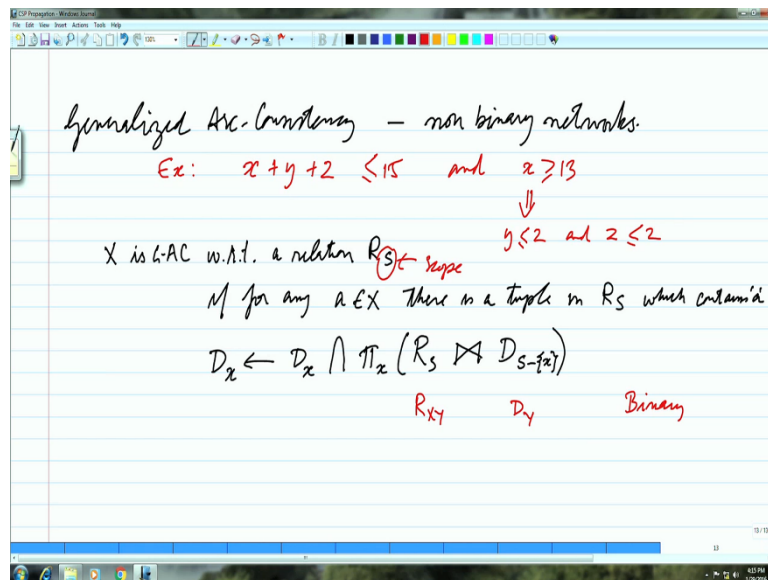 CSP Propagation - Windows Journal
File Edit View Insert Actions Tools Help
130%
B I
Generalized Arc-Consistency – non binary networks.
Ex: x + y + z ≤ 15 and x ≥ 13
⇓
y ≤ 2 and z ≤ 2
X is G-AC w.r.t. a relation R_S ← scope
if for any a ∈ X there is a tuple in R_S which contains a
D_x ← D_x ∩ π_x (R_S ⋈ D_{S-{x}})
R_{XY} D_Y Binary
13/13
13
4:13 PM